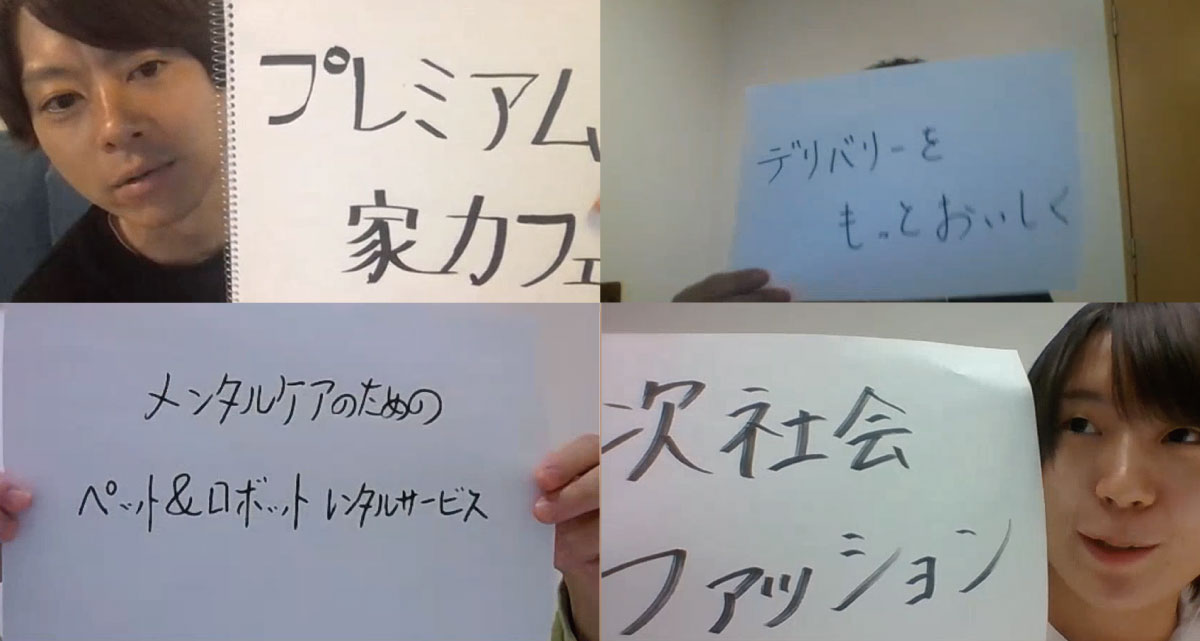 プレミアム
家カフェ
デリバリーを
もっとおいしく
メンタルケアのための
ペット&ロボット レンタルサービス
次社会
ファッション